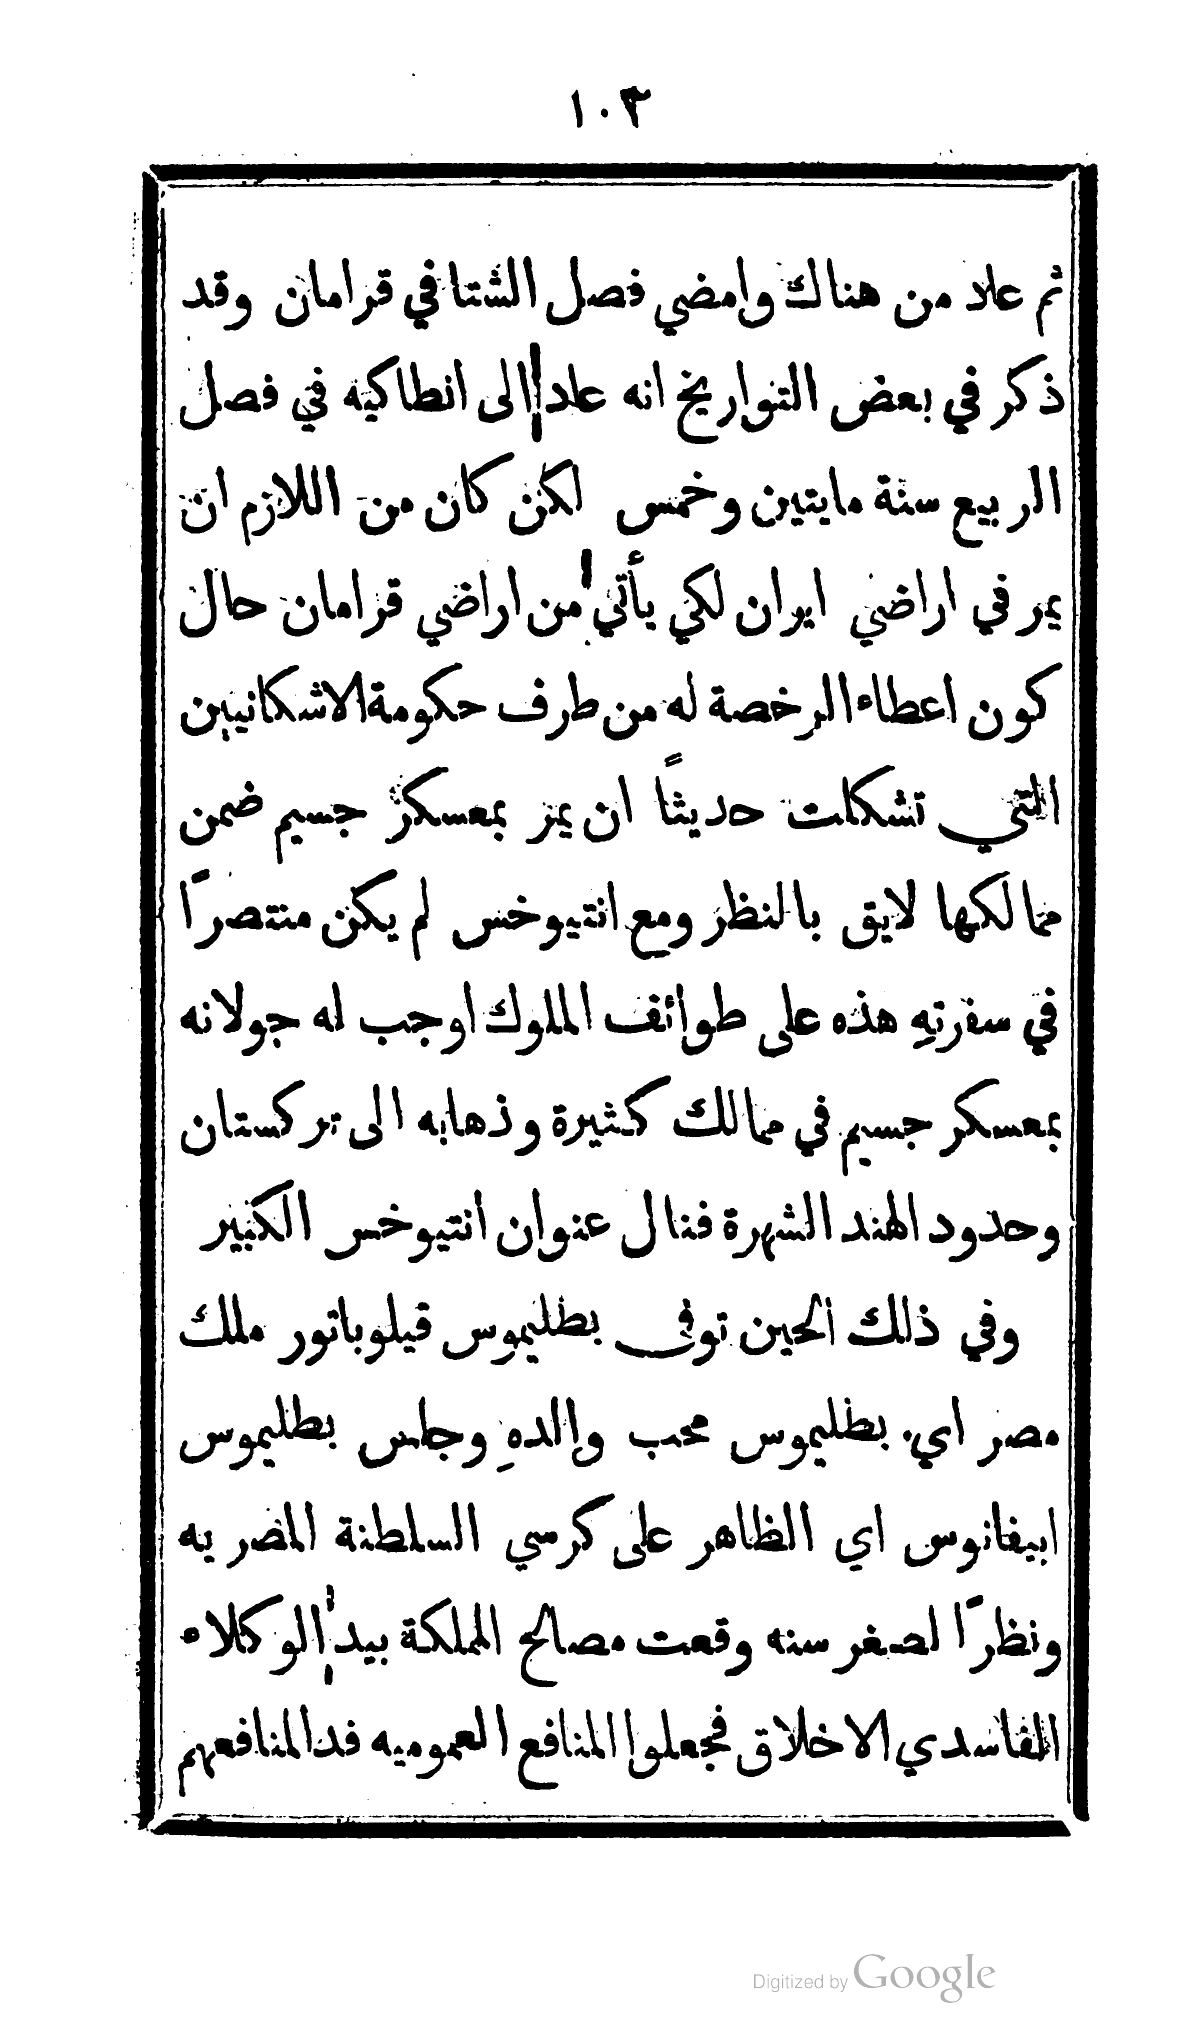 ١٠٣
ثم عاد من هناك وامضي فصل الشتا في قرامان وقد
ذكر في بعض التواريخ انه عاد الى انطاكيه في فصل
الربيع سنة مايتين وخمس لكن كان من اللازم ان
يمر في اراضي ايران لكي يأتي من اراضي قرامان حال
كون اعطاء الرخصة له من طرف حكومة الاشكانيين
التي تشكلت حديثًا ان يمر بمعسكر جسيم ضمن
ممالكها لايق بالنظر ومع انتيوخس لم يكن منتصرًا
في سفرتهِ هذه على طوائف الملوك اوجب له جولانه
بمعسكر جسيم في ممالك كثيرة وذهابه الى تركستان
وحدود الهند الشهرة فنال عنوان انتيوخس الكبير
وفي ذلك الحين توفى بطليموس فيلوباتور ملك
مصر اي بطليموس محب والدهِ وجلس بطليموس
ابيفانوس اي الظاهر على كرسي السلطنة المصريه
ونظرًا لصغر سنه وقعت مصالح المملكة بيد الوكلاء
الفاسدي الاخلاق فجعلوا المنافع العموميه فدا لمنافعهم
Digitized by Google